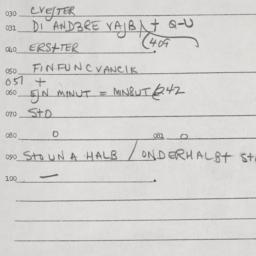 030 CVEJTER
031 DI ANDERE VAJB
040 ERSHTER
050 FINFUNCVANCIK
051
060 EJN MINUT = MINBUT 242
070 STO
080 0 082 0
090 STO UN A HALB / ONDERHALBT
100 —